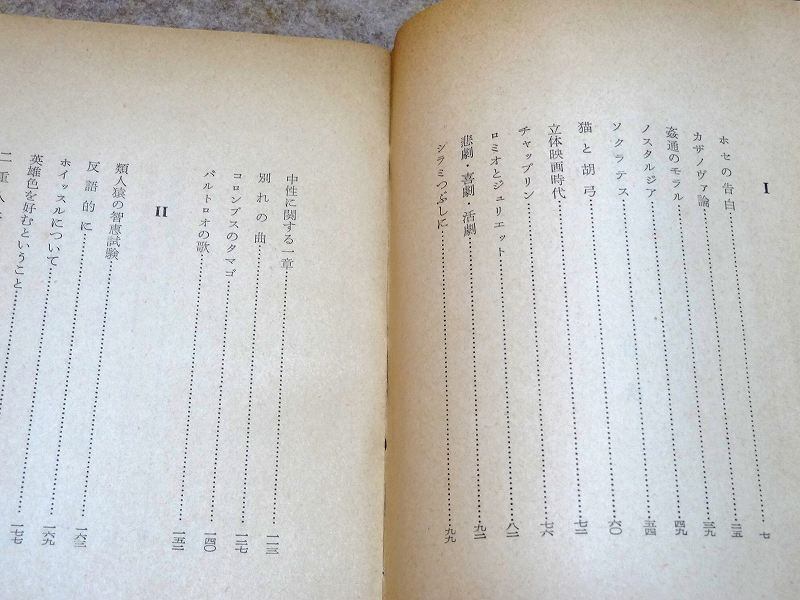 I
ホセの告白……七
カザノヴァ論……二五
姦通のモラル……三九
ノスタルジア……四九
ソクラテス……五四
猫と胡弓……六〇
立体映画時代……七二
チャップリン……七六
ロミオとジュリエット……八二
悲劇・喜劇・活劇……九二
シラミつぶしに……九九
中性に関する一章……一一三
別れの曲……一二七
コロンブスのタマゴ……一四〇
バルトロオの歌……一五二
II
類人猿の智恵試験……一六三
反語的に……一六九
ホイッスルについて……一七七
英雄色を好むということ
二重人